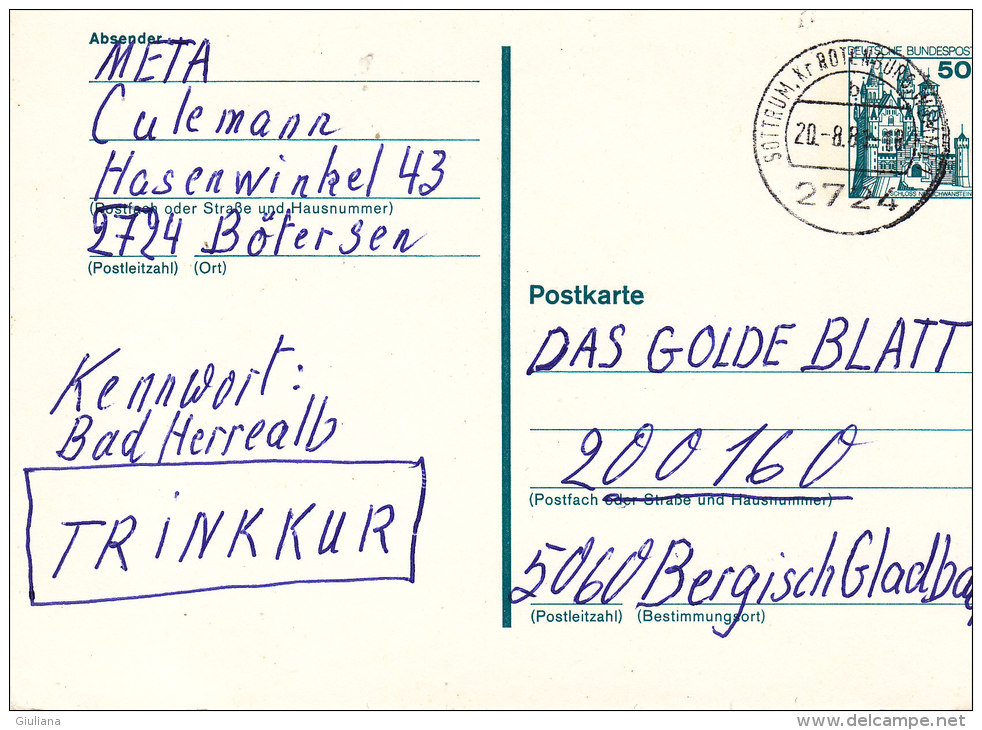 Absender
META
Culemann
Hasenwinkel 43
(Postfach oder Straße und Hausnummer)
2724 Bötersen
(Postleitzahl) (Ort)
Kennwort:
Bad Herrealb
TRiNKKUR
DEUTSCHE BUNDESPOST
50
SCHLOSS NEUSCHWANSTEIN
SOTTRUM, Kr ROTENBURG
b
20.-8.8
2724
Postkarte
DAS GOLDE BLATT
200160
(Postfach oder Straße und Hausnummer)
5060 Bergisch Gladba
(Postleitzahl) (Bestimmungsort)
Giuliana
www.delcampe.net